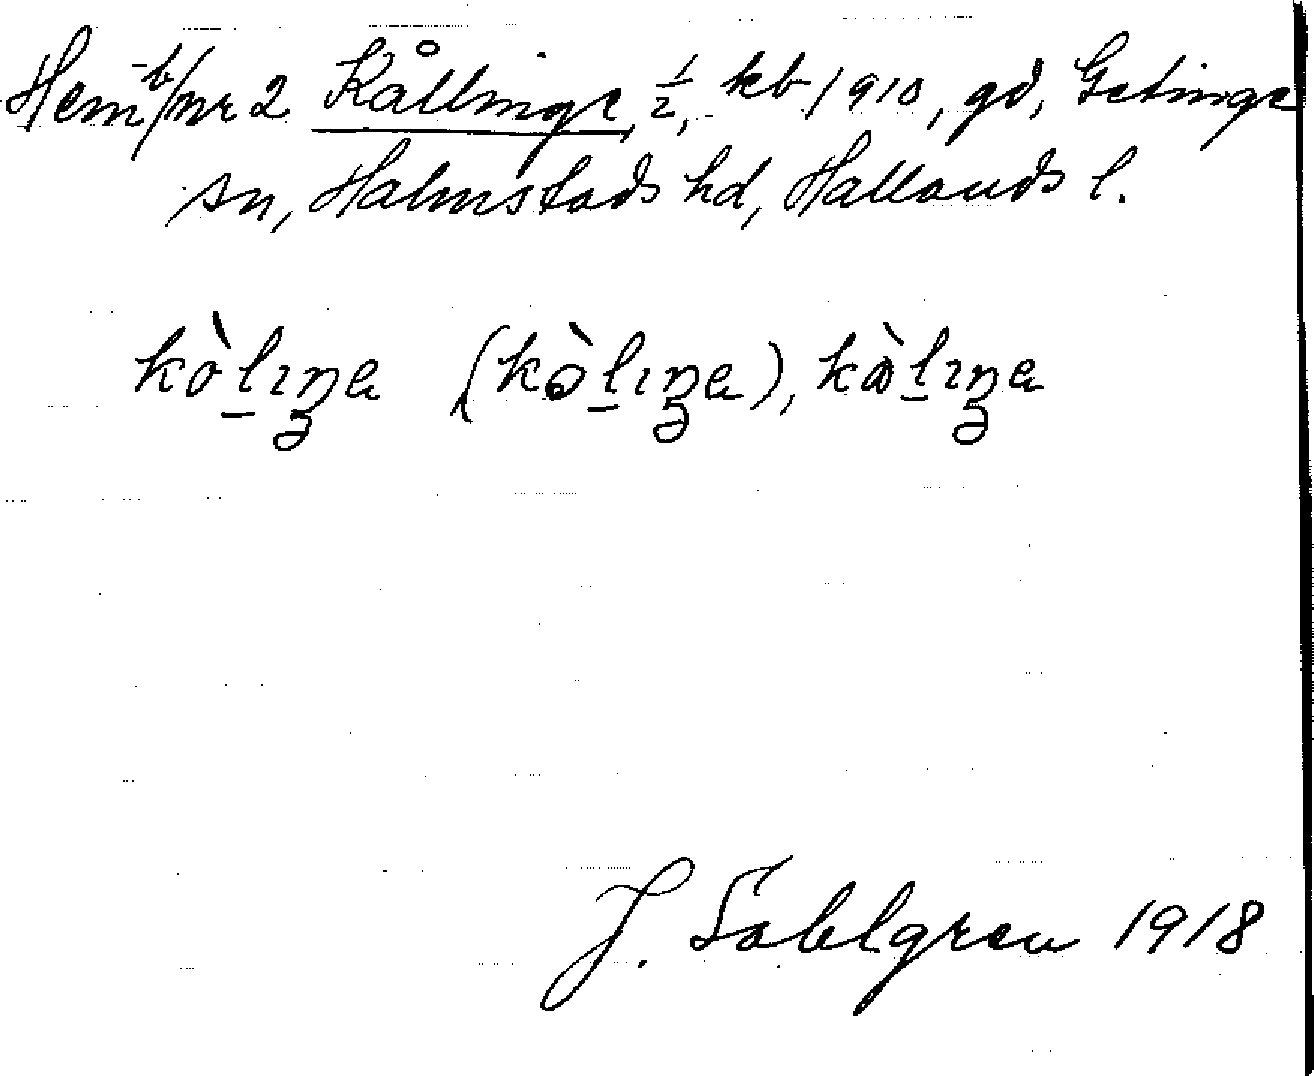 Hem b/nr 2 Kållinge, ½, kb 1910, gd, Getinge
sn, Halmstads hd, Hallands l.
kòl̠ıŋa (kòl̠ıŋa), kàl̠ıŋa
J. Sahlgren 1918